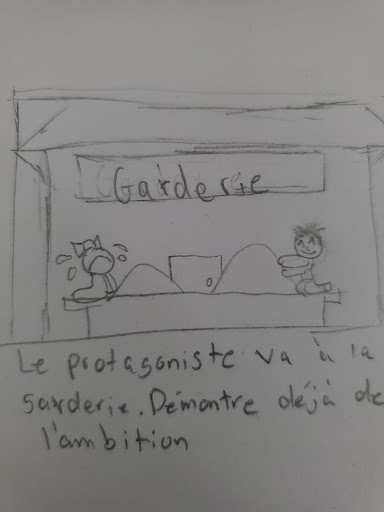 Garderie
Le protagoniste va à la
garderie. Démontre déjà de
l'ambition